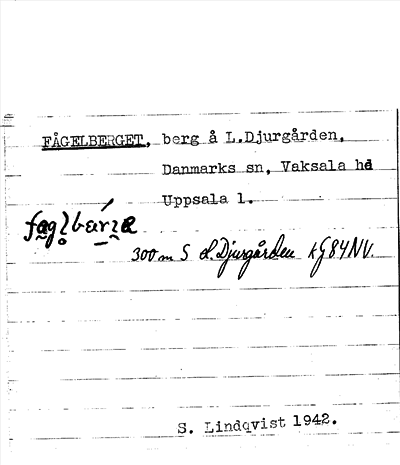 FÅGELBERGET, berg å L.Djurgården,
Danmarks sn, Vaksala hd
Uppsala l.
300 m S L. Djurgården kg 84 NV.
S. Lindqvist 1942.